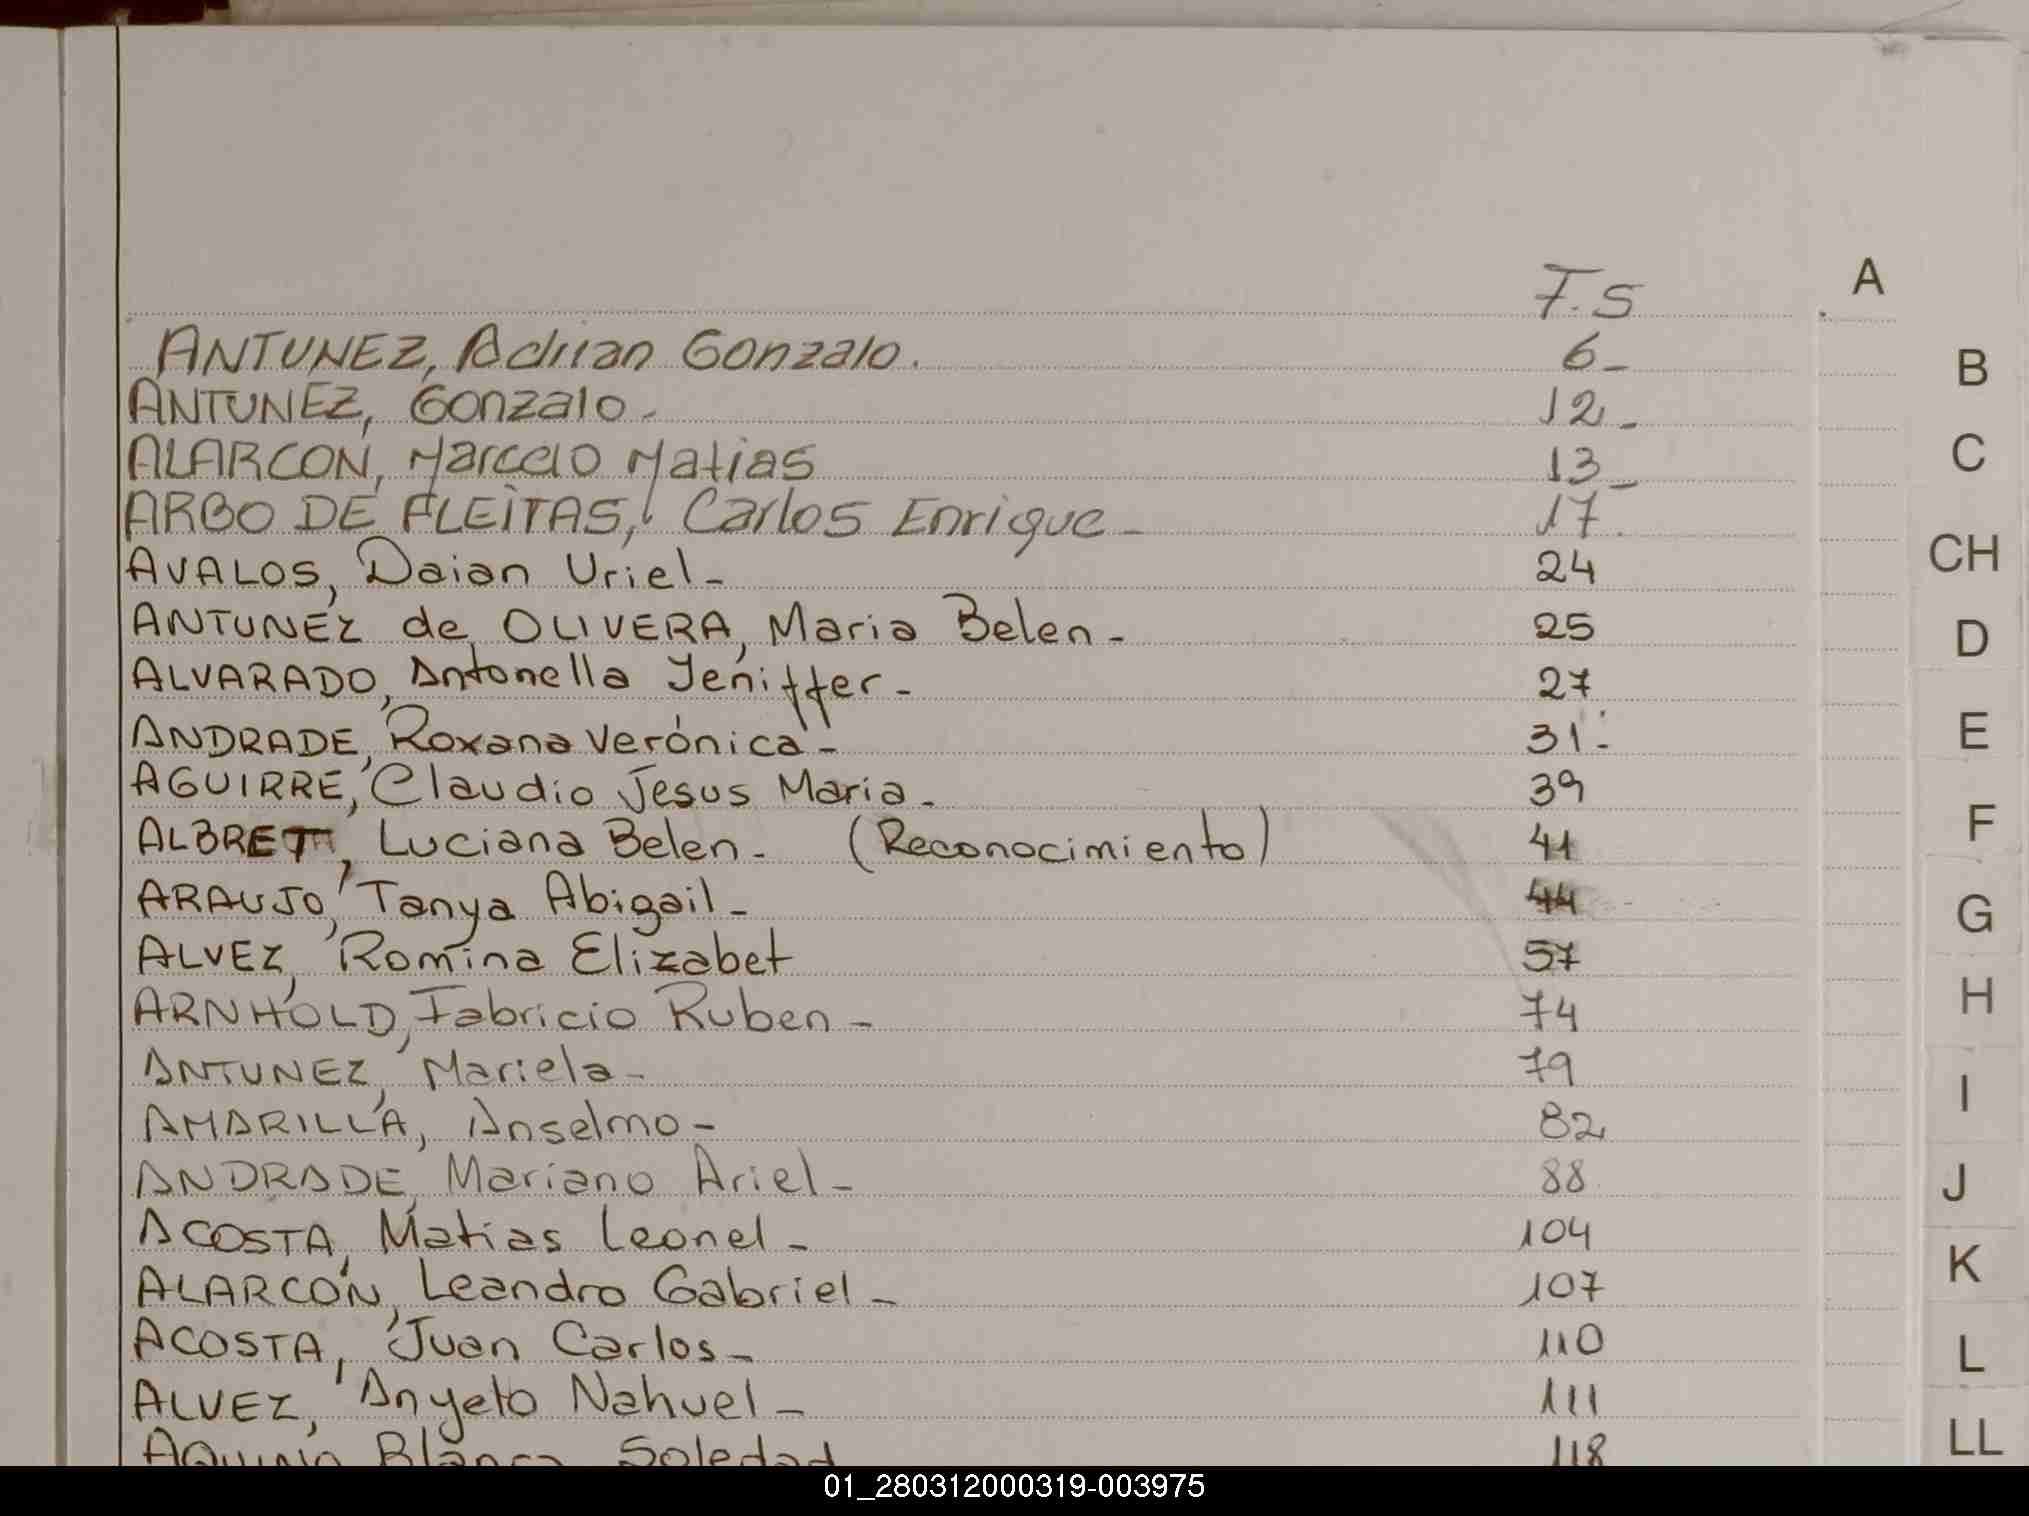 F.S
ANTUNEZ, Adrian Gonzalo. 6_
ANTUNEZ, Gonzalo. 12_
ALARCON, Marcelo Matias 13_
ARBO DE FLEITAS, Carlos Enrique_ 17.
AVALOS, Daian Uriel_ 24
ANTUNEZ de OLIVERA, Maria Belen_ 25
ALVARADO, Antonella Yeniffer_ 27
ANDRADE, Roxana Verónica_ 31.
AGUIRRE, Claudio Jesus Maria_ 39
ALBRET, Luciana Belen_ (Reconocimiento) 41
ARAUJO, Tanya Abigail_ 44
ALVEZ, Romina Elizabet 57
ARNHOLD, Fabricio Ruben_ 74
ANTUNEZ, Mariela_ 79
AMARILLA, Anselmo_ 82
ANDRADE, Mariano Ariel_ 88
ACOSTA, Matias Leonel_ 104
ALARCON, Leandro Gabriel_ 107
ACOSTA, Juan Carlos_ 110
ALVEZ, Anyelo Nahuel_ 111
AQUINO Blanca Soledad 118
A
B
C
CH
D
E
F
G
H
I
J
K
L
LL
01_280312000319-003975